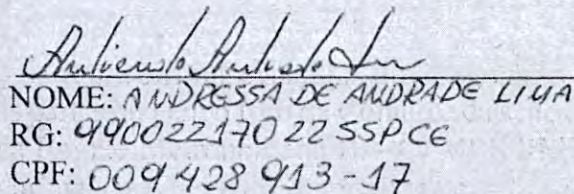 NOME: ANDRESSA DE ANDRADE LIMA
RG: 99002217022 SSPCE
CPF: 009 428 913-17